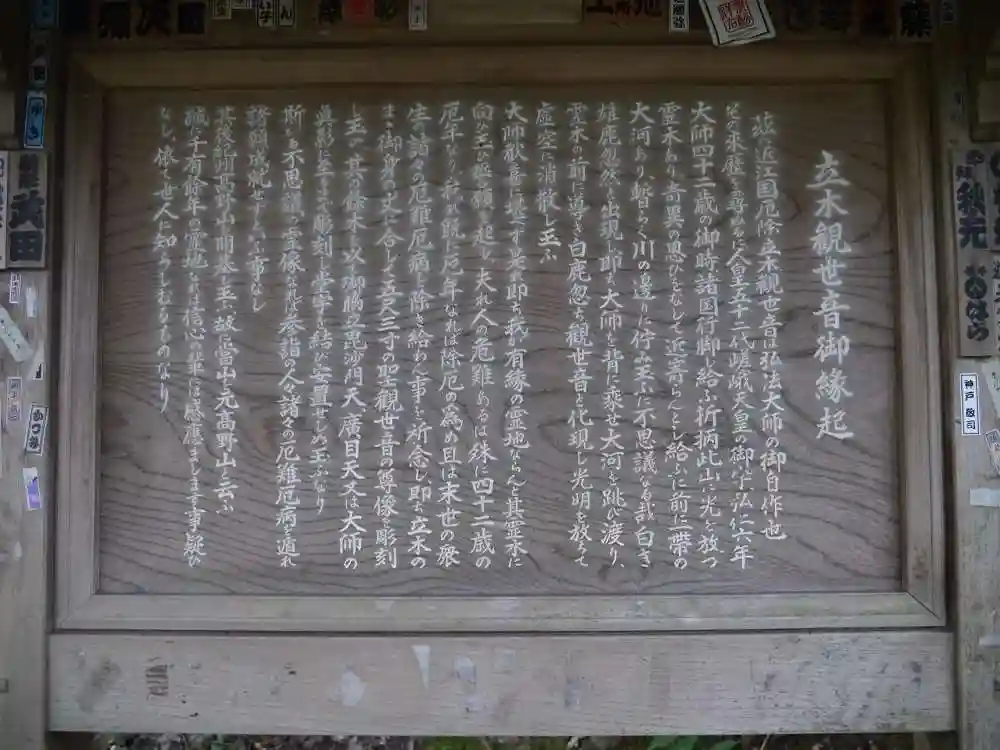 立木観世音御縁起
茲に近江国厄除立木観世音は弘法大師の御自作也
其の来歴を尋ぬるに人皇五十二代嵯峨天皇の御宇弘仁六年
大師四十二歳の御時諸国行脚し給ふ折柄此山に光を放つ
霊木あり奇異の思ひをなして近寄らんとし給ふに前に一帯の
大河あり、暫らく川の辺りに佇み玉ふに不思議なる哉白き
雄鹿忽然と出現し即ち大師を背に乗せ大河を跳び渡り、
霊木の前に導き白鹿忽ち観世音と化現し光明を放ちて
虚空に消散し玉ふ
大師歓喜に堪ず是即ち我が有縁の霊地ならんと其霊木に
向ひ玉ひ誓願を起し夫れ人の危難あるは殊に四十二歳の
厄年なり我れ既に厄年なれば除厄の為め且は末世の衆
生の諸々の厄難厄病を除き給わん事を祈念し即ち立木の
まま御身の丈に合し五尺三寸の聖観世音の尊像を彫刻
し玉ひ其の餘木を以て御脇の毘沙門天廣目天又は大師の
真影に至る迄彫刻し堂宇を結び安置せしめ玉ふなり
斯かる不思議の霊像なれば参詣の人々諸々の厄難厄病を遁れ
諸願成就せずと云ふ事なし
其後高野山を開基し玉ふ故に當山を元高野山と云ふ
誠に千有餘年の霊地なれば信心の輩には感應まします事疑ひ
なし、依て世人に知らしむるものなり
武田
神戸敬司